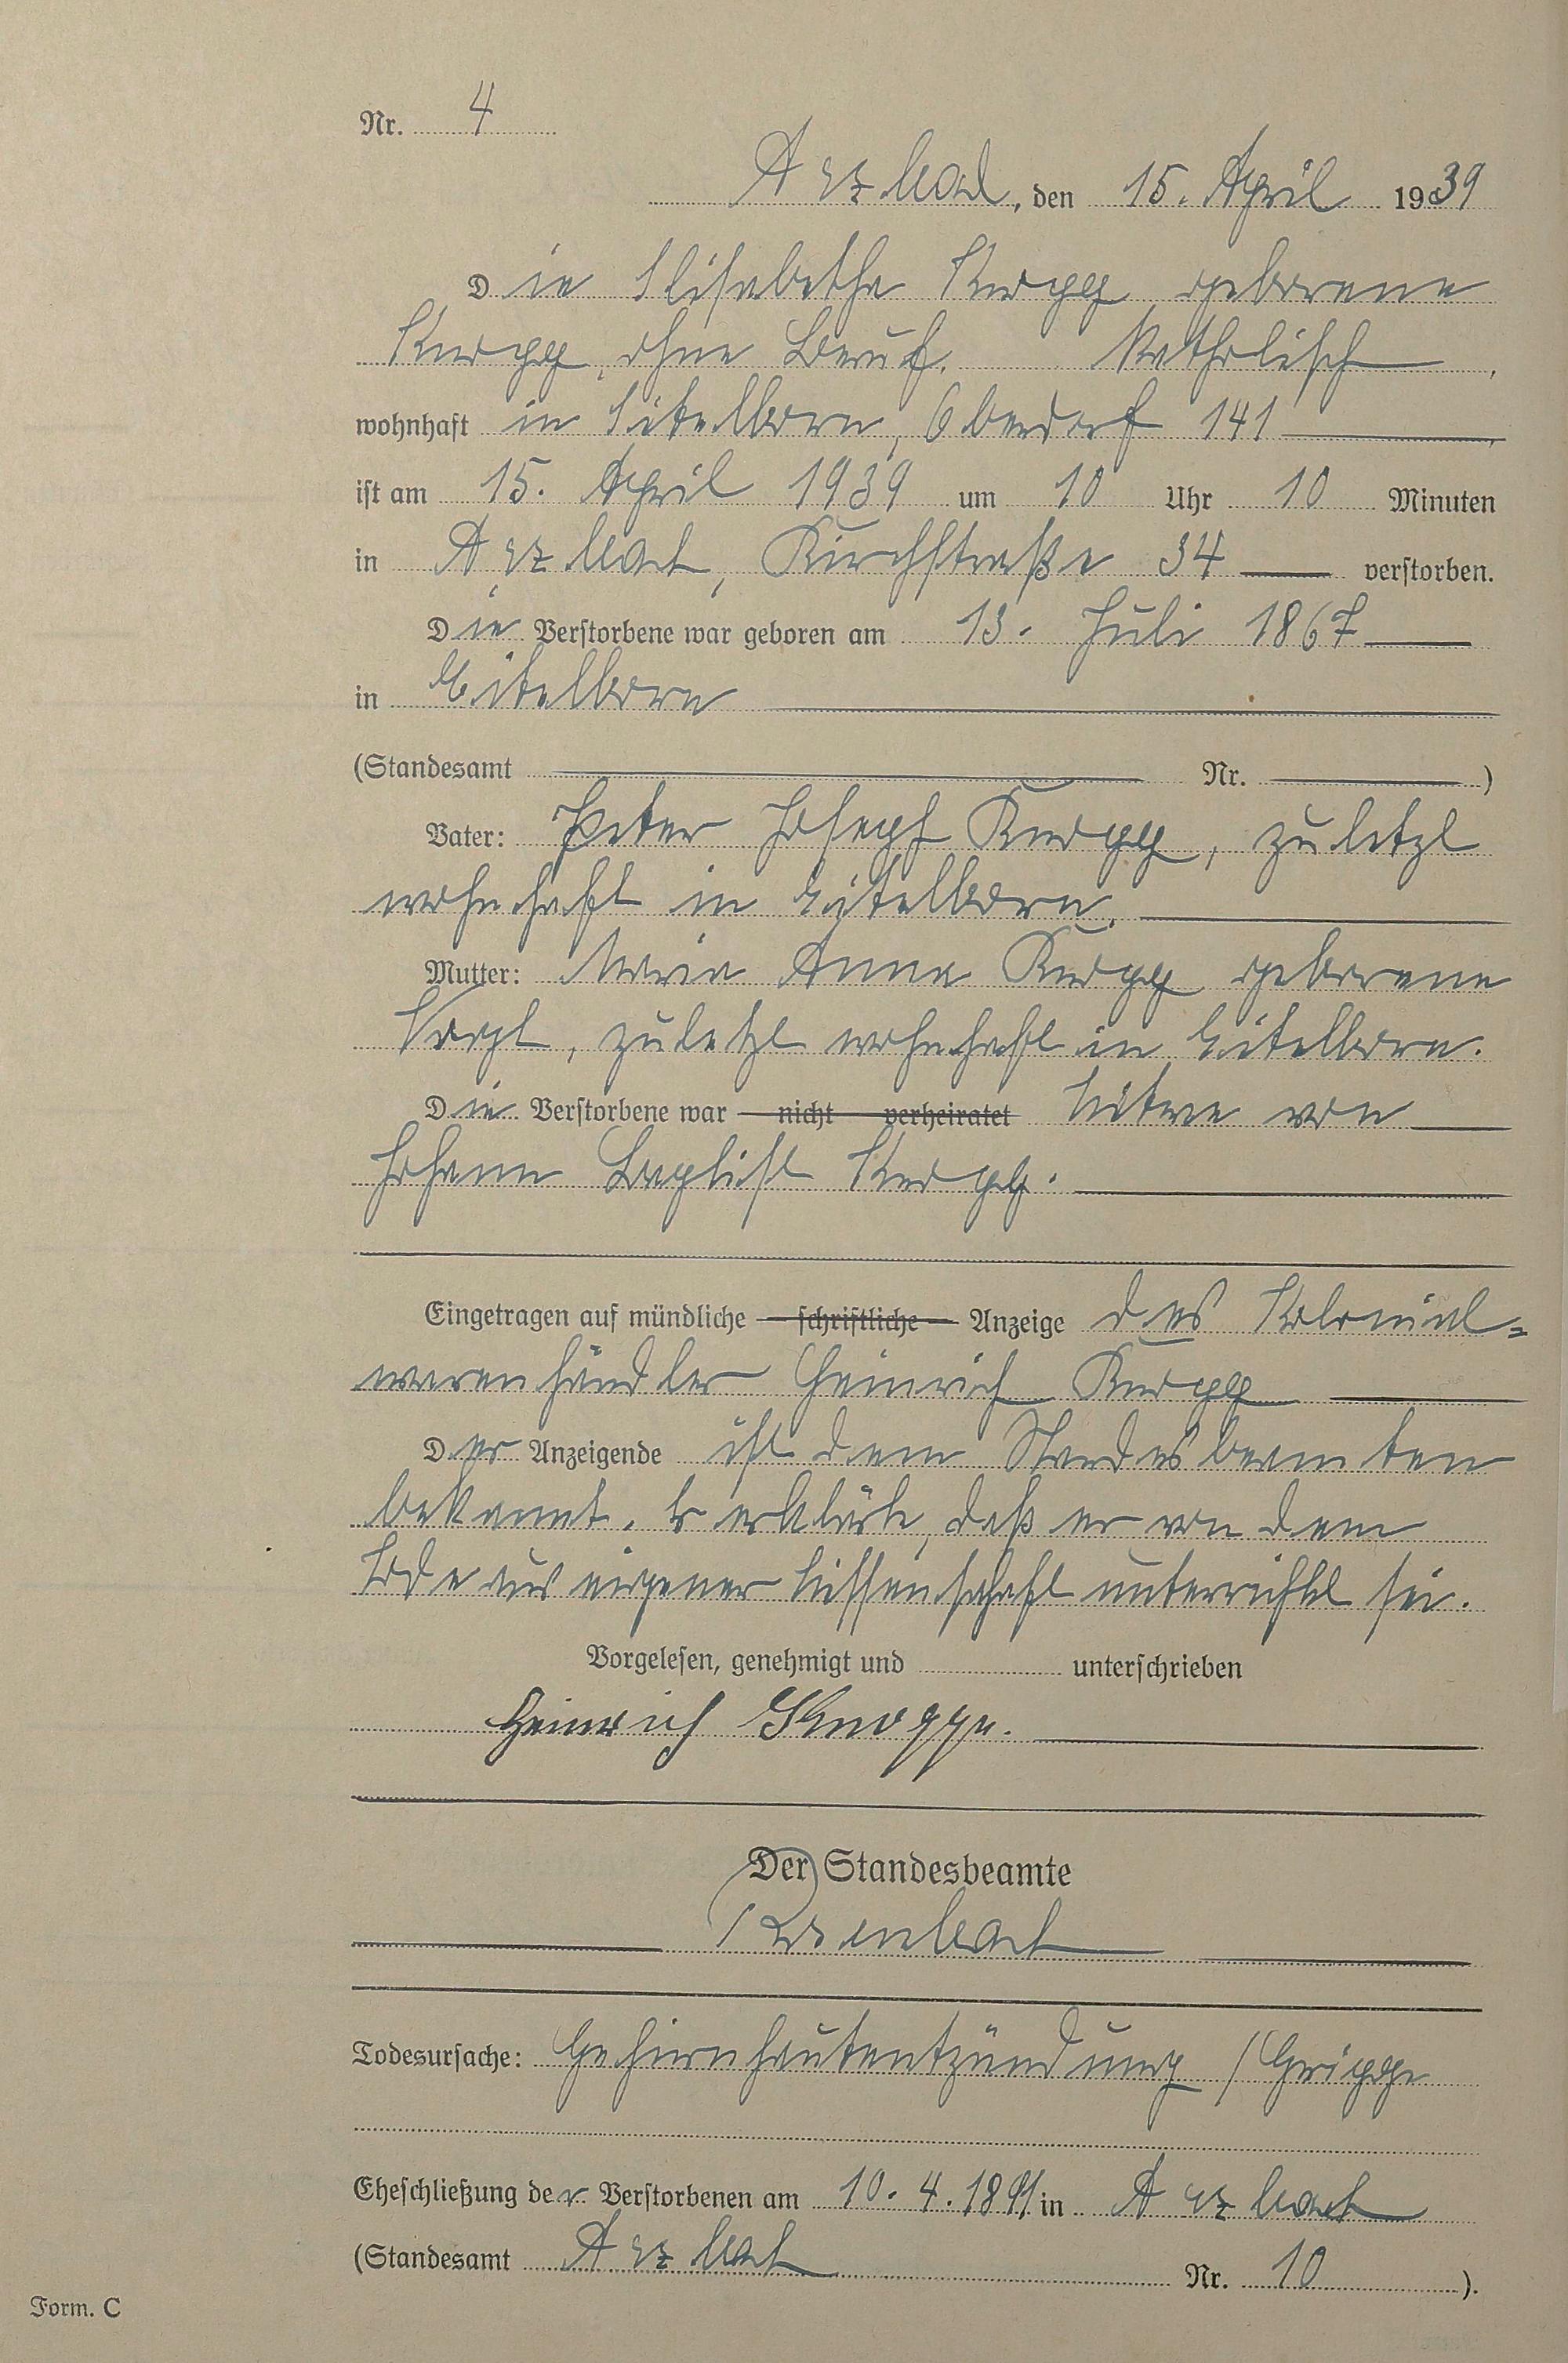 Nr. 4
Arzbach, den 15. April 1939
Die Elisabetha Knopp geborene
Knopp, ohne Beruf. Katholisch,
wohnhaft in Eitelborn, Oberdorf 141
ist am 15. April 1939 um 10 Uhr 10 Minuten
in Arzbach, Kirchstraße 34 verstorben.
Die Verstorbene war geboren am 13. Juli 1867
in Eitelborn
(Standesamt Nr. )
Vater: Peter Joseph Knopp, zuletzt
wohnhaft in Eitelborn.
Mutter: Maria Anna Knopp geborene
zuletzt wohnhaft in Eitelborn.
Die Verstorbene war nicht verheiratet Witwe von
Johann Baptist Knopp.
Eingetragen auf mündliche schriftliche Anzeige des Kolonial=
warenhändler Heinrich Knopp
Der Anzeigende ist dem Standesbeamten
bekannt. Er erklärte, daß er von dem
Tode aus eigener Wissenschaft unterrichtet sei.
Vorgelesen, genehmigt und unterschrieben
Heinrich Knopp.
Der Standesbeamte
Todesursache: Gehirnhautentzündung / Grippe
Eheschließung der Verstorbenen am 10. 4. 1891 in Arzbach
(Standesamt Arzbach Nr. 10 ).
Form. C